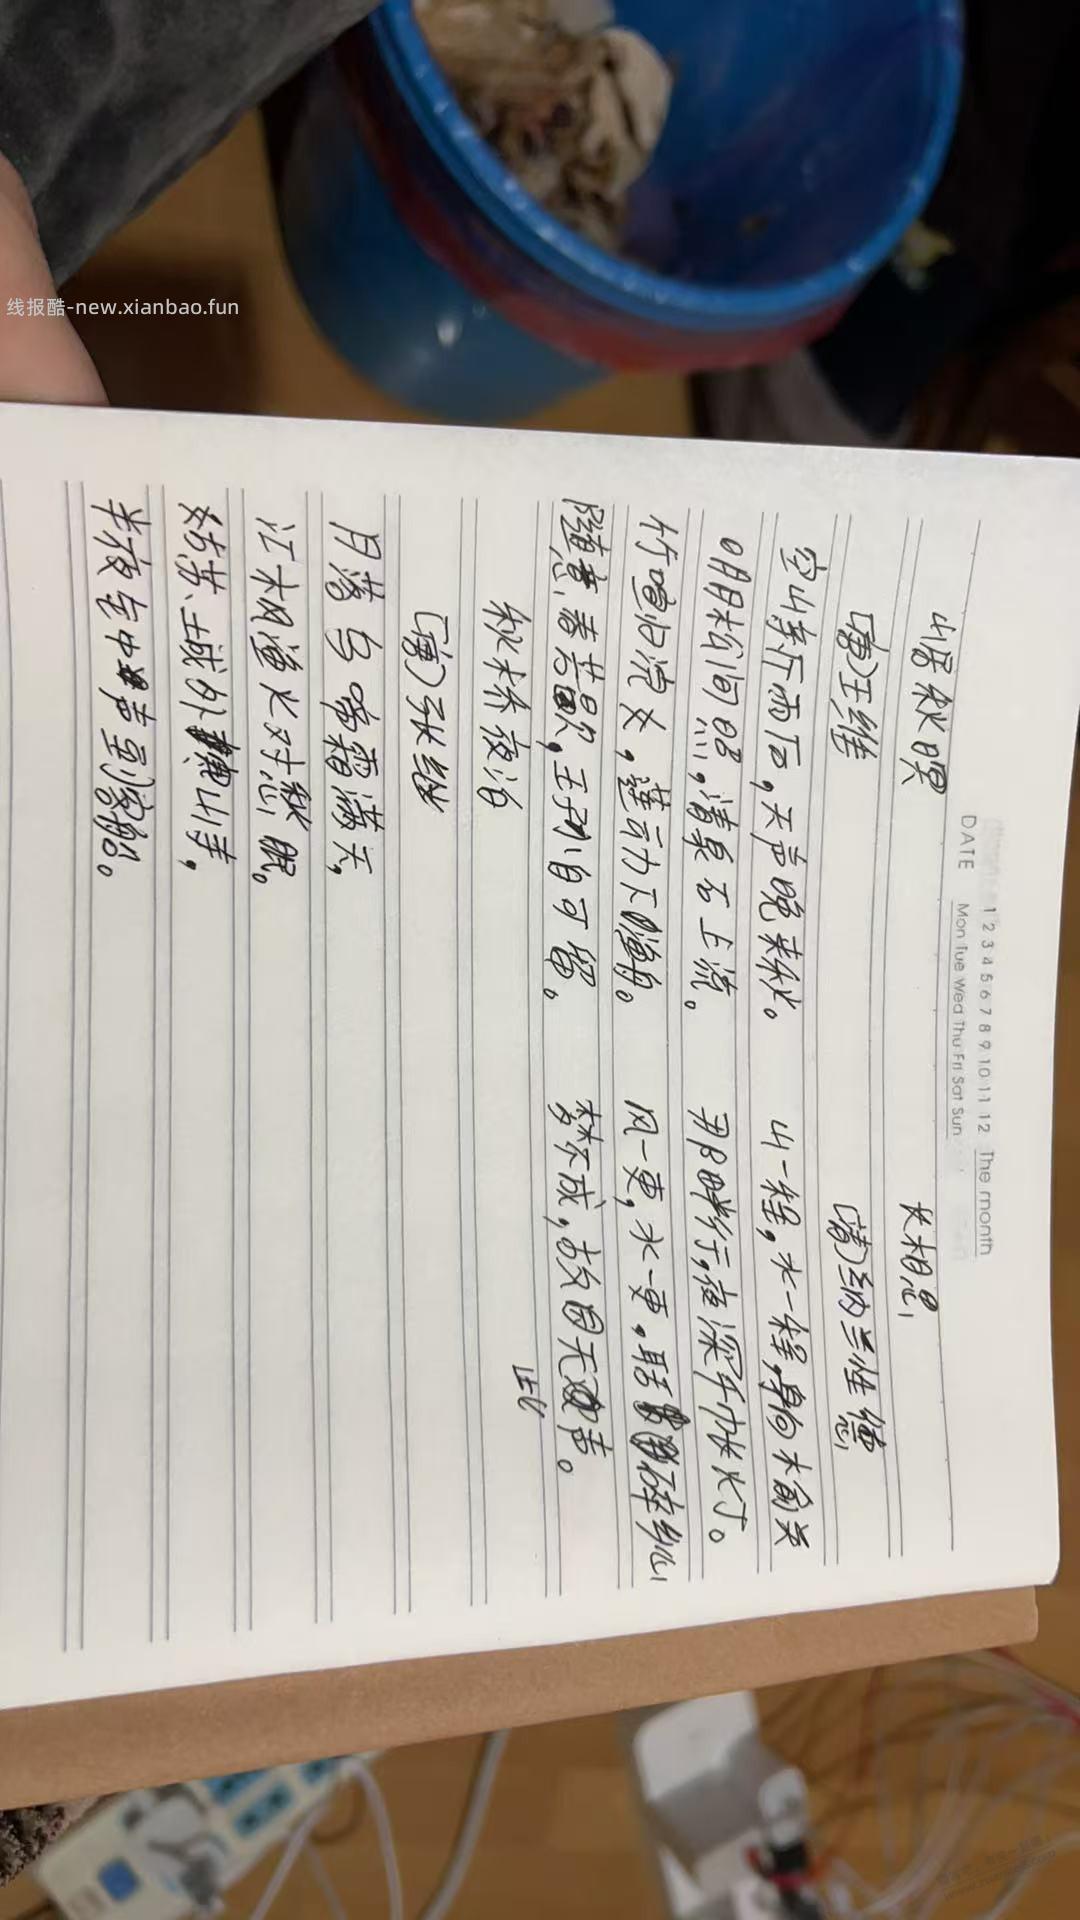 1 2 3 4 5 6 7 8 9 10 11 12 The month
DATE Mon Tue Wed Thu Fri Sat Sun
山居秋暝
(唐)王维
空山新雨后,天声晚来秋。
明月松间照,清泉石上流。
竹喧归浣女,莲动下渔舟。
随意春芳歇,王孙自可留。
秋桥夜泊
(唐)张继
月落乌啼霜满天,
江枫渔火对愁眠。
姑苏城外寒山寺,
半夜声到客船。
长相思
(清)纳兰性德
山一程,水一程,身向榆关
那畔行,夜深千帐灯。
风一更,水一更,聒碎乡心
梦不成,故园无声。
线报酷-new.xianbao.fun